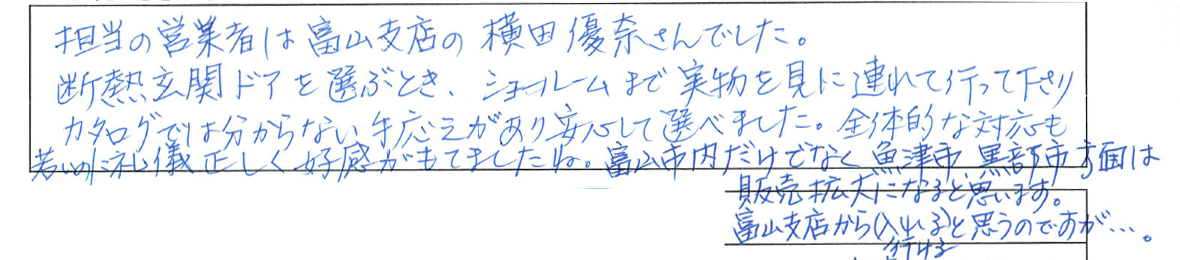 担当の営業者は富山支店の横田優奈さんでした。
断熱玄関ドアを選ぶとき、ショールームまで実物を見に連れて行って下さり
カタログでは分からない手応えがあり安心して選べました。全体的な対応も
若いのに礼儀正しく好感がもてましたね。富山市内だけでなく魚津市、黒部市方面は
販売拡大になると思います。
富山支店から(入れる)と思うのですが…。
行ける